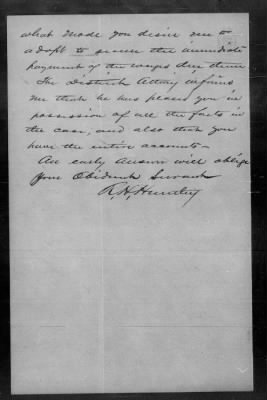 what mode you desire me to
adopt to secure the immediate
payment of the wages due them
The District Attny informs
me that he has placed you in
possession of all the facts in
the case, and also that you
have the entire accounts—
An early answer will oblige
Your Obedient Servant
R. H. Huntley